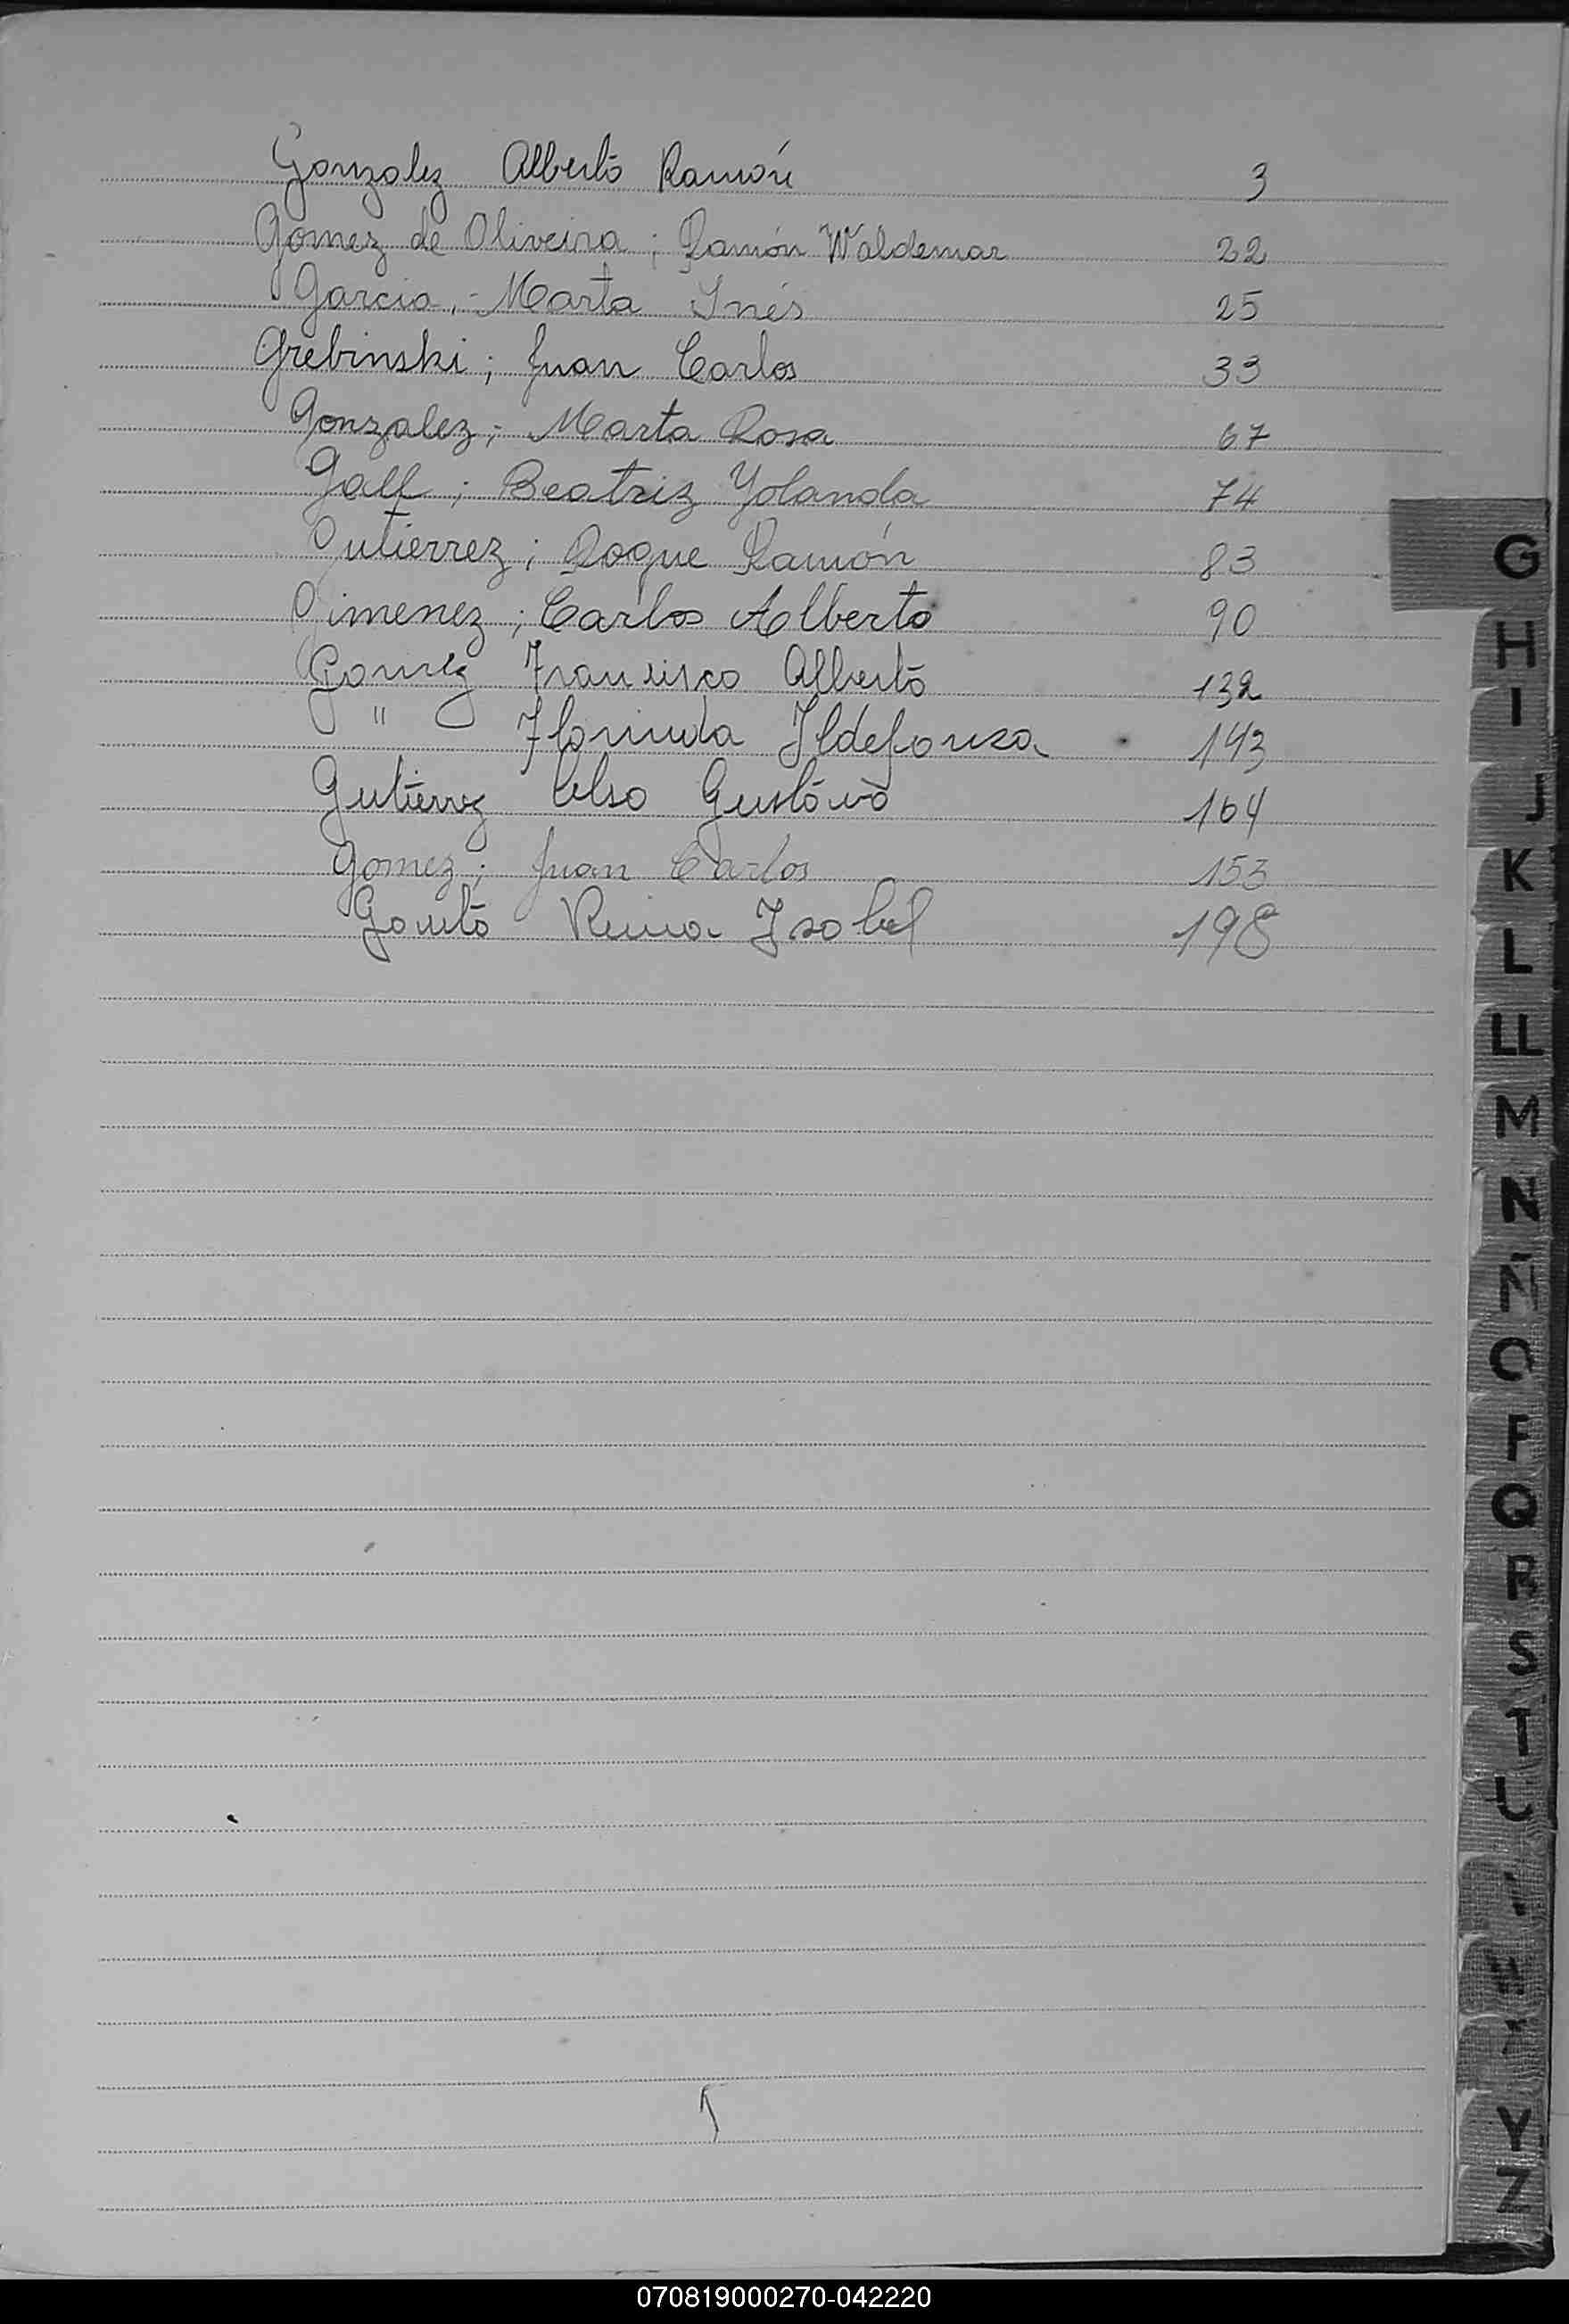 Gonzalez Alberto Ramón 3
Gomez de Oliveira; Ramón Waldemar 22
Garcia,- Marta Inés 25
Grebinski; Juan Carlos 33
Gonzalez; Marta Rosa 67
Gall; Beatriz Yolanda 74
Gutierrez; Roque Ramón 83
Gimenez; Carlos Alberto 90
Gomez Francisco Alberto 132
" Florinda Ildefonsa 143
Gutiérrez Celso Gustavo 164
Gomez; Juan Carlos 153
Reina Isabel 198
G
H
I
J
K
L
LL
M
N
Ñ
O
P
Q
R
S
T
U
Y
Z
070819000270-042220